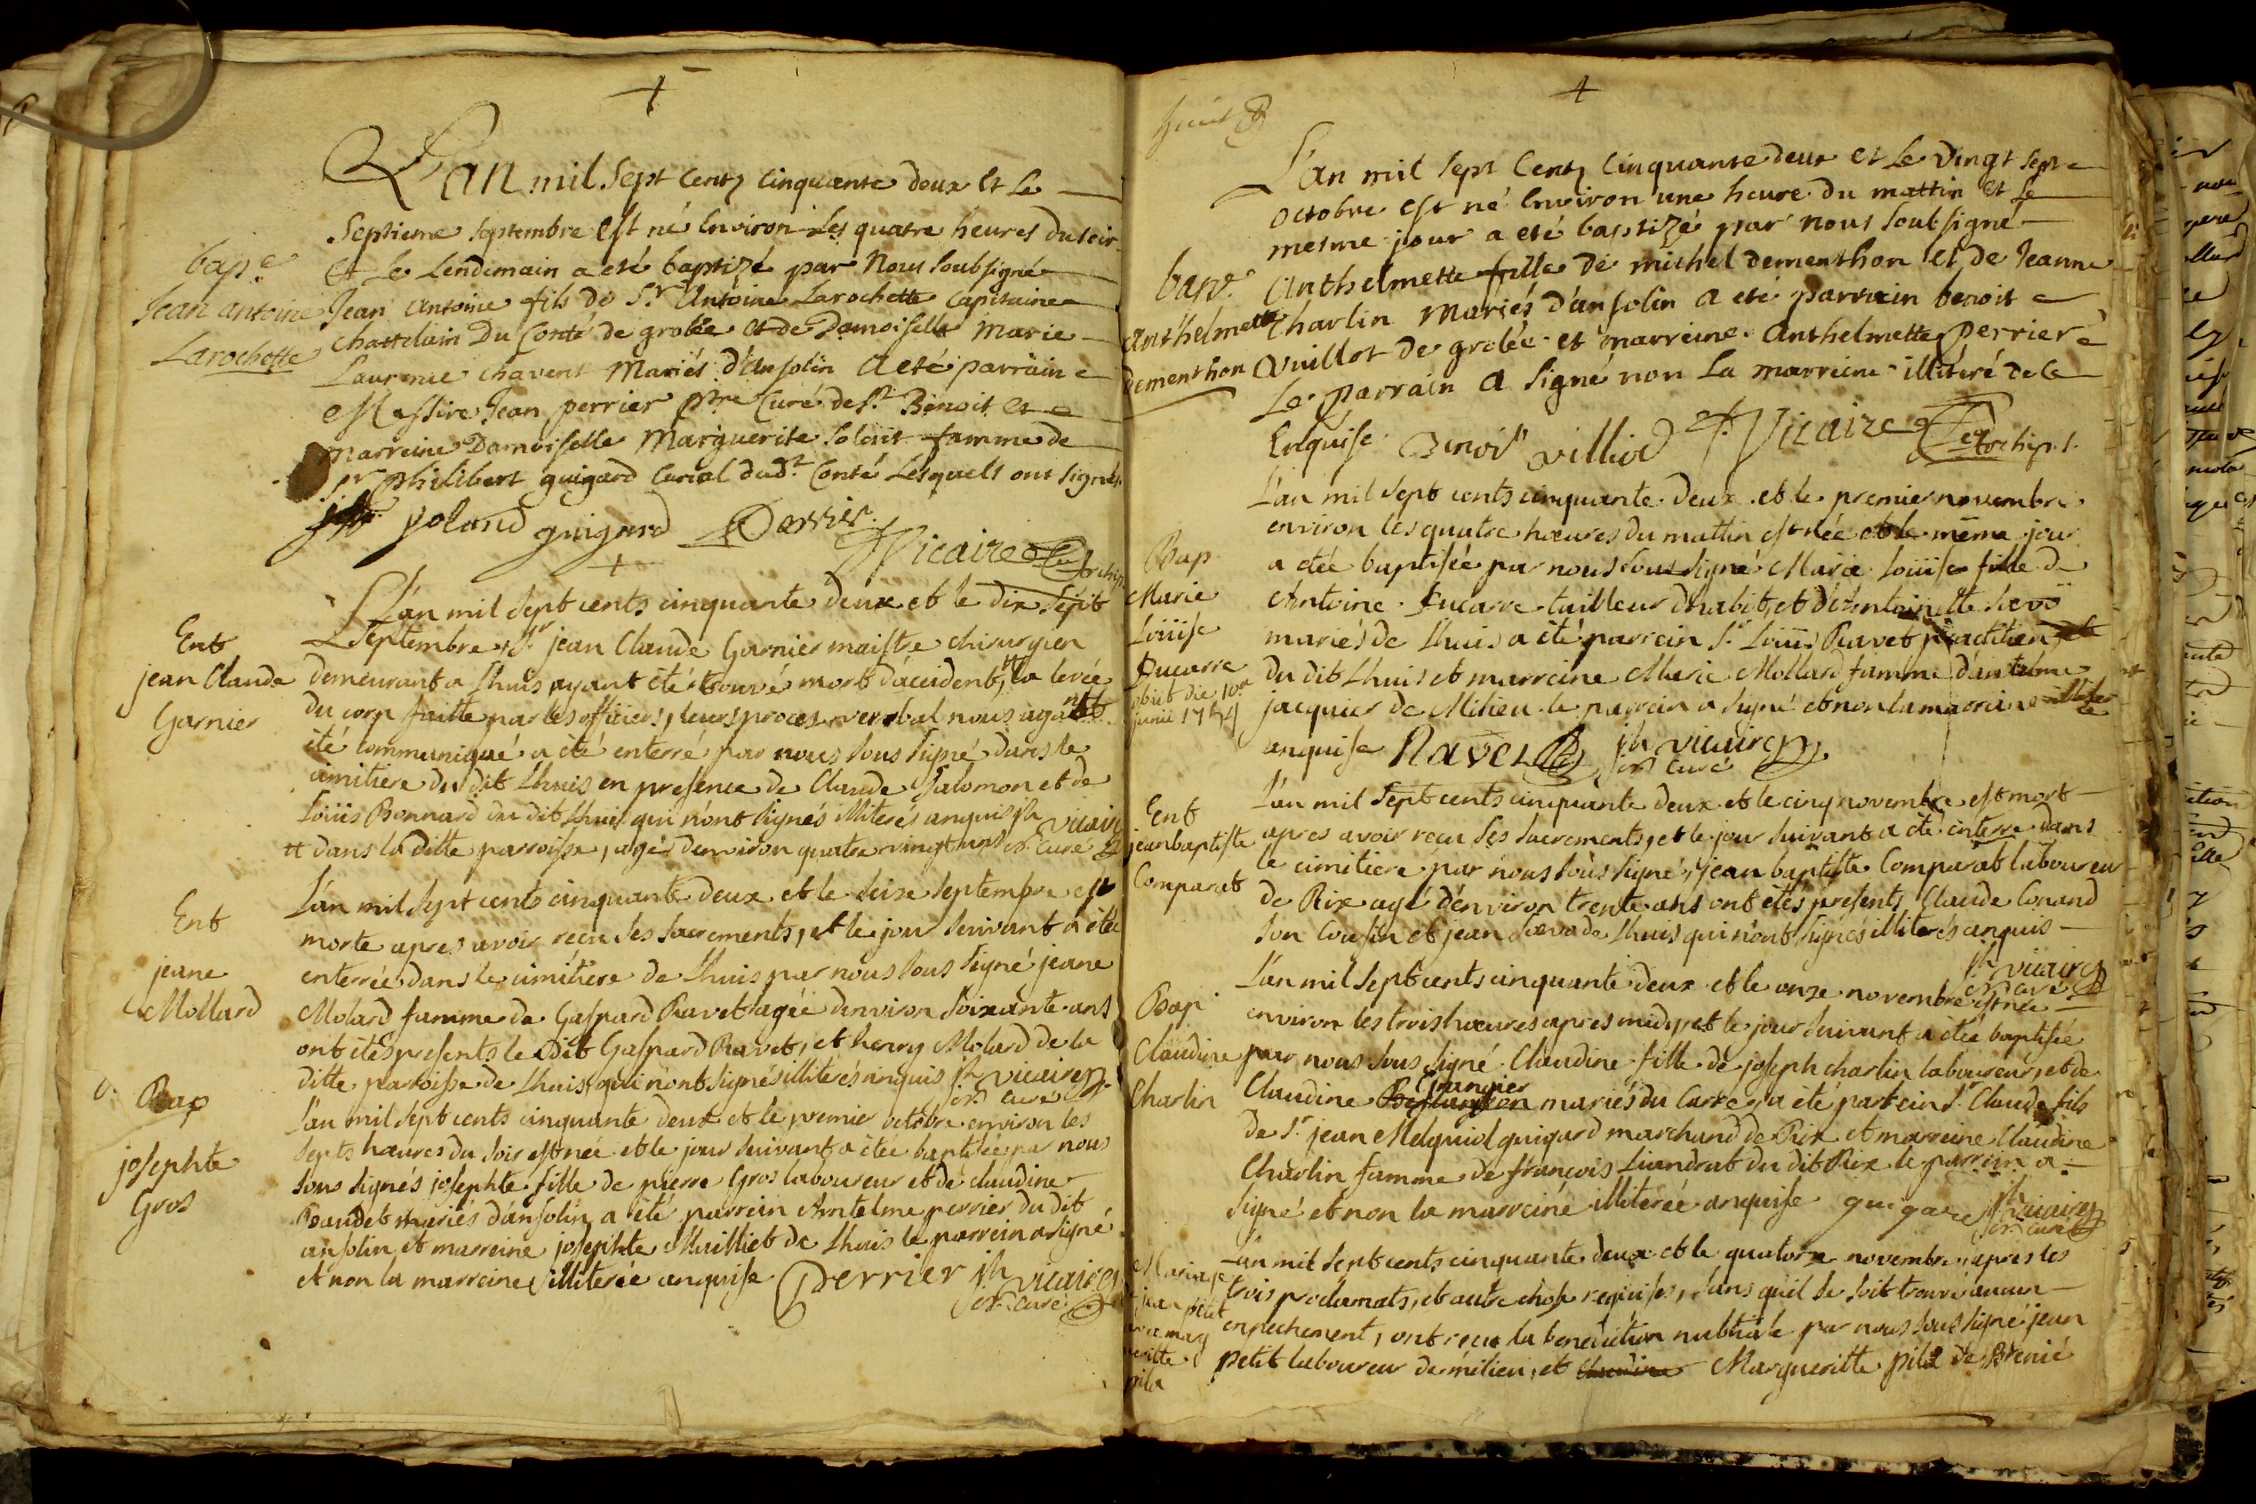 L'an mil Sept Cents Cinquante deux et Le
Septieme Septembre Est né Environ Les quatre heures du soir
Et le Lendemain a eté baptizé par Nous Soubsigné
bap.e
Jean Antoine fils de S.r Antoine Larochette Capitaine
Jean antoine
Chattelain Du Conté de grolée et de Damoiselle Marie
Larochette
Laurence Chavent Mariés d'ansolin A eté parrain
Messire Jean perrier p.tre Curé de S.t Benoit et
marreine Damoiselle Marguerite Soland famme de
S.r philibert guigard Curial dud.t Conté Lesquels ont signés
soland guigard Perrier
JVicaire Archip.
L'an mil Sept cents cinquante deux et le dix Sept
Septembre S.r jean Claude Garnier maistre chirurgien
Ent
jean Claude
Garnier
demeurant a Lhuis ayant été trouvé mort d'accident, # la levée
du corp faitte par les officiers, leurs proces verbal nous ayant
été communiqué a été enterré par nous Sous Signé dans le
cimitiere du dit Lhuis en presence de Claude Salomon et de
Loüis Bonnard du dit Lhuis qui n'ont signés illiterés anquis jh vicaire
# dans la ditte parroisse, agé denviron quatre vingt ans et curé
L'an mil Sept cents cinquante deux et le Seize Septembre est
Ent
jeane
Mollard
morte apres avoir recu Ses Sacrements, et le jour Suivant a etée
enterrée dans le cimitiere de Lhuis par nous Sous Signé jeane
Molard famme de Gaspard Ravet agée denviron Soixante ans
ont étés presents le dit Gaspard Ravet, et henry Molard de la
ditte paroisse de Lhuis qui n'ont Signés illiterés anquis jh vicaire
curé
Bap
josephte
Gros
L'an mil Sept cents cinquante deux et le premier octobre environ les
Septs hœures du Soir est née et le jour Suivant a étée baptisée par nous
Sous Signés josephte fille de pierre Gros laboureur et de claudine
Baudet mariés d'ansolin a été parrein Antelme perrier du dit
ansolin et marreine josephte Mailliet de Lhuis le parrein a signé
et non la marreine illiterée anquise Perrier jh vicaire
curé
L'an mil Sept Cents Cinquante deux et Le vingt sept
octobre est né Environ une heure du mattin et Le
mesme jour a eté baptizé par nous Soubsigné
bap.e
Anthelmette
dementhon
Anthelmette fille de michel dementhon et de Jeanne
Charlin Mariés d'ansolin a eté parrain benoit
Quillot de grolée et marreine Anthelmette perrier
Le parrain a Signé non La marreine illitéré de ce
Enquise Benoit villiod JVicaire Archip.
L'an mil Sept cents cinquante deux et le premier novembre
environ les quatre hœures du mattin est née et le même jour
Bap
Marie
Loüise
Ducarre
obiit die 10a
junii 1754
a étée baptisée par nous Sous Signé Marie Loüise fille de
Antoine Ducarre tailleur d'habit, et d'Antoinette
mariés de Lhuis a été parrein S.r Loüis Ravet practitien
du dit Lhuis et marreine Marie Mollard famme dantelme
jacquier de Milieu le parrein a Signé et non la marreine illiter
ée
anquise Ravet jh vicaire
curé
L'an mil Sept cents cinquante deux et le cinq novembre est mort
Ent
jean baptiste
Comparat
apres avoir recu Ses Sacrements, et le jour Suivant a été enterré dans
le cimitiere par nous Sous Signé, jean baptiste Comparat laboureur
de Rix agé d'environ trente ans ont étés presents Claude Conand
Son Cousin et jean de Lhuis qui n'ont Signés illiterés anquis
jh vicaire
curé
Bap
Claudine
Charlin
L'an mil Sept cents cinquante deux et le onze novembre est née
environ les trois hœures apres midy, et le jour Suivant a étée baptisée
par nous Sous Signé Claudine fille de joseph charlin laboureur, et de
Grangier
Claudine mariés du Carre, a été parrein S.r Claude fils
de S.r jean Melquiol guigard marchand de Rix et marreine Claudine
Charlin famme de francois Liandrat du dit Rix le parrein a
Signé et non la marreine illiterée anquise guigard jh vicaire
curé
L'an mil Sept cents cinquante deux et le quatorze novembre apres les
Mariage
jean petit
marg
ueritte
pila
trois proclamats, et autre chose requises, Sans qu'il Se Soit trouvé aucun
enpechement, ont recu la benediction nubtiale par nous Sous Signé jean
petit laboureur de milieu, et Claudine Margueritte pila de Brenié